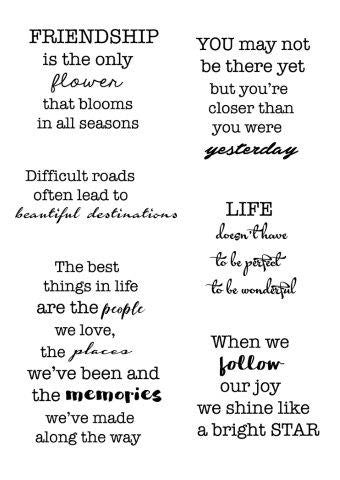 FRIENDSHIP
is the only
flower
that blooms
in all seasons
Difficult roads
often lead to
beautiful destinations
The best
things in life
are the people
we love,
the places
we've been and
the memories
we've made
along the way
YOU may not
be there yet
but you're
closer than
you were
yesterday
LIFE
doesn't have
to be perfect
to be wonderful
When we
follow
our joy
we shine like
a bright STAR